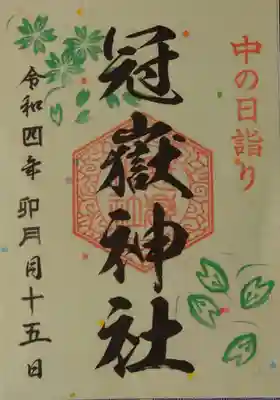 中の日詣り
冠嶽神社
令和四年 卯月月十五日